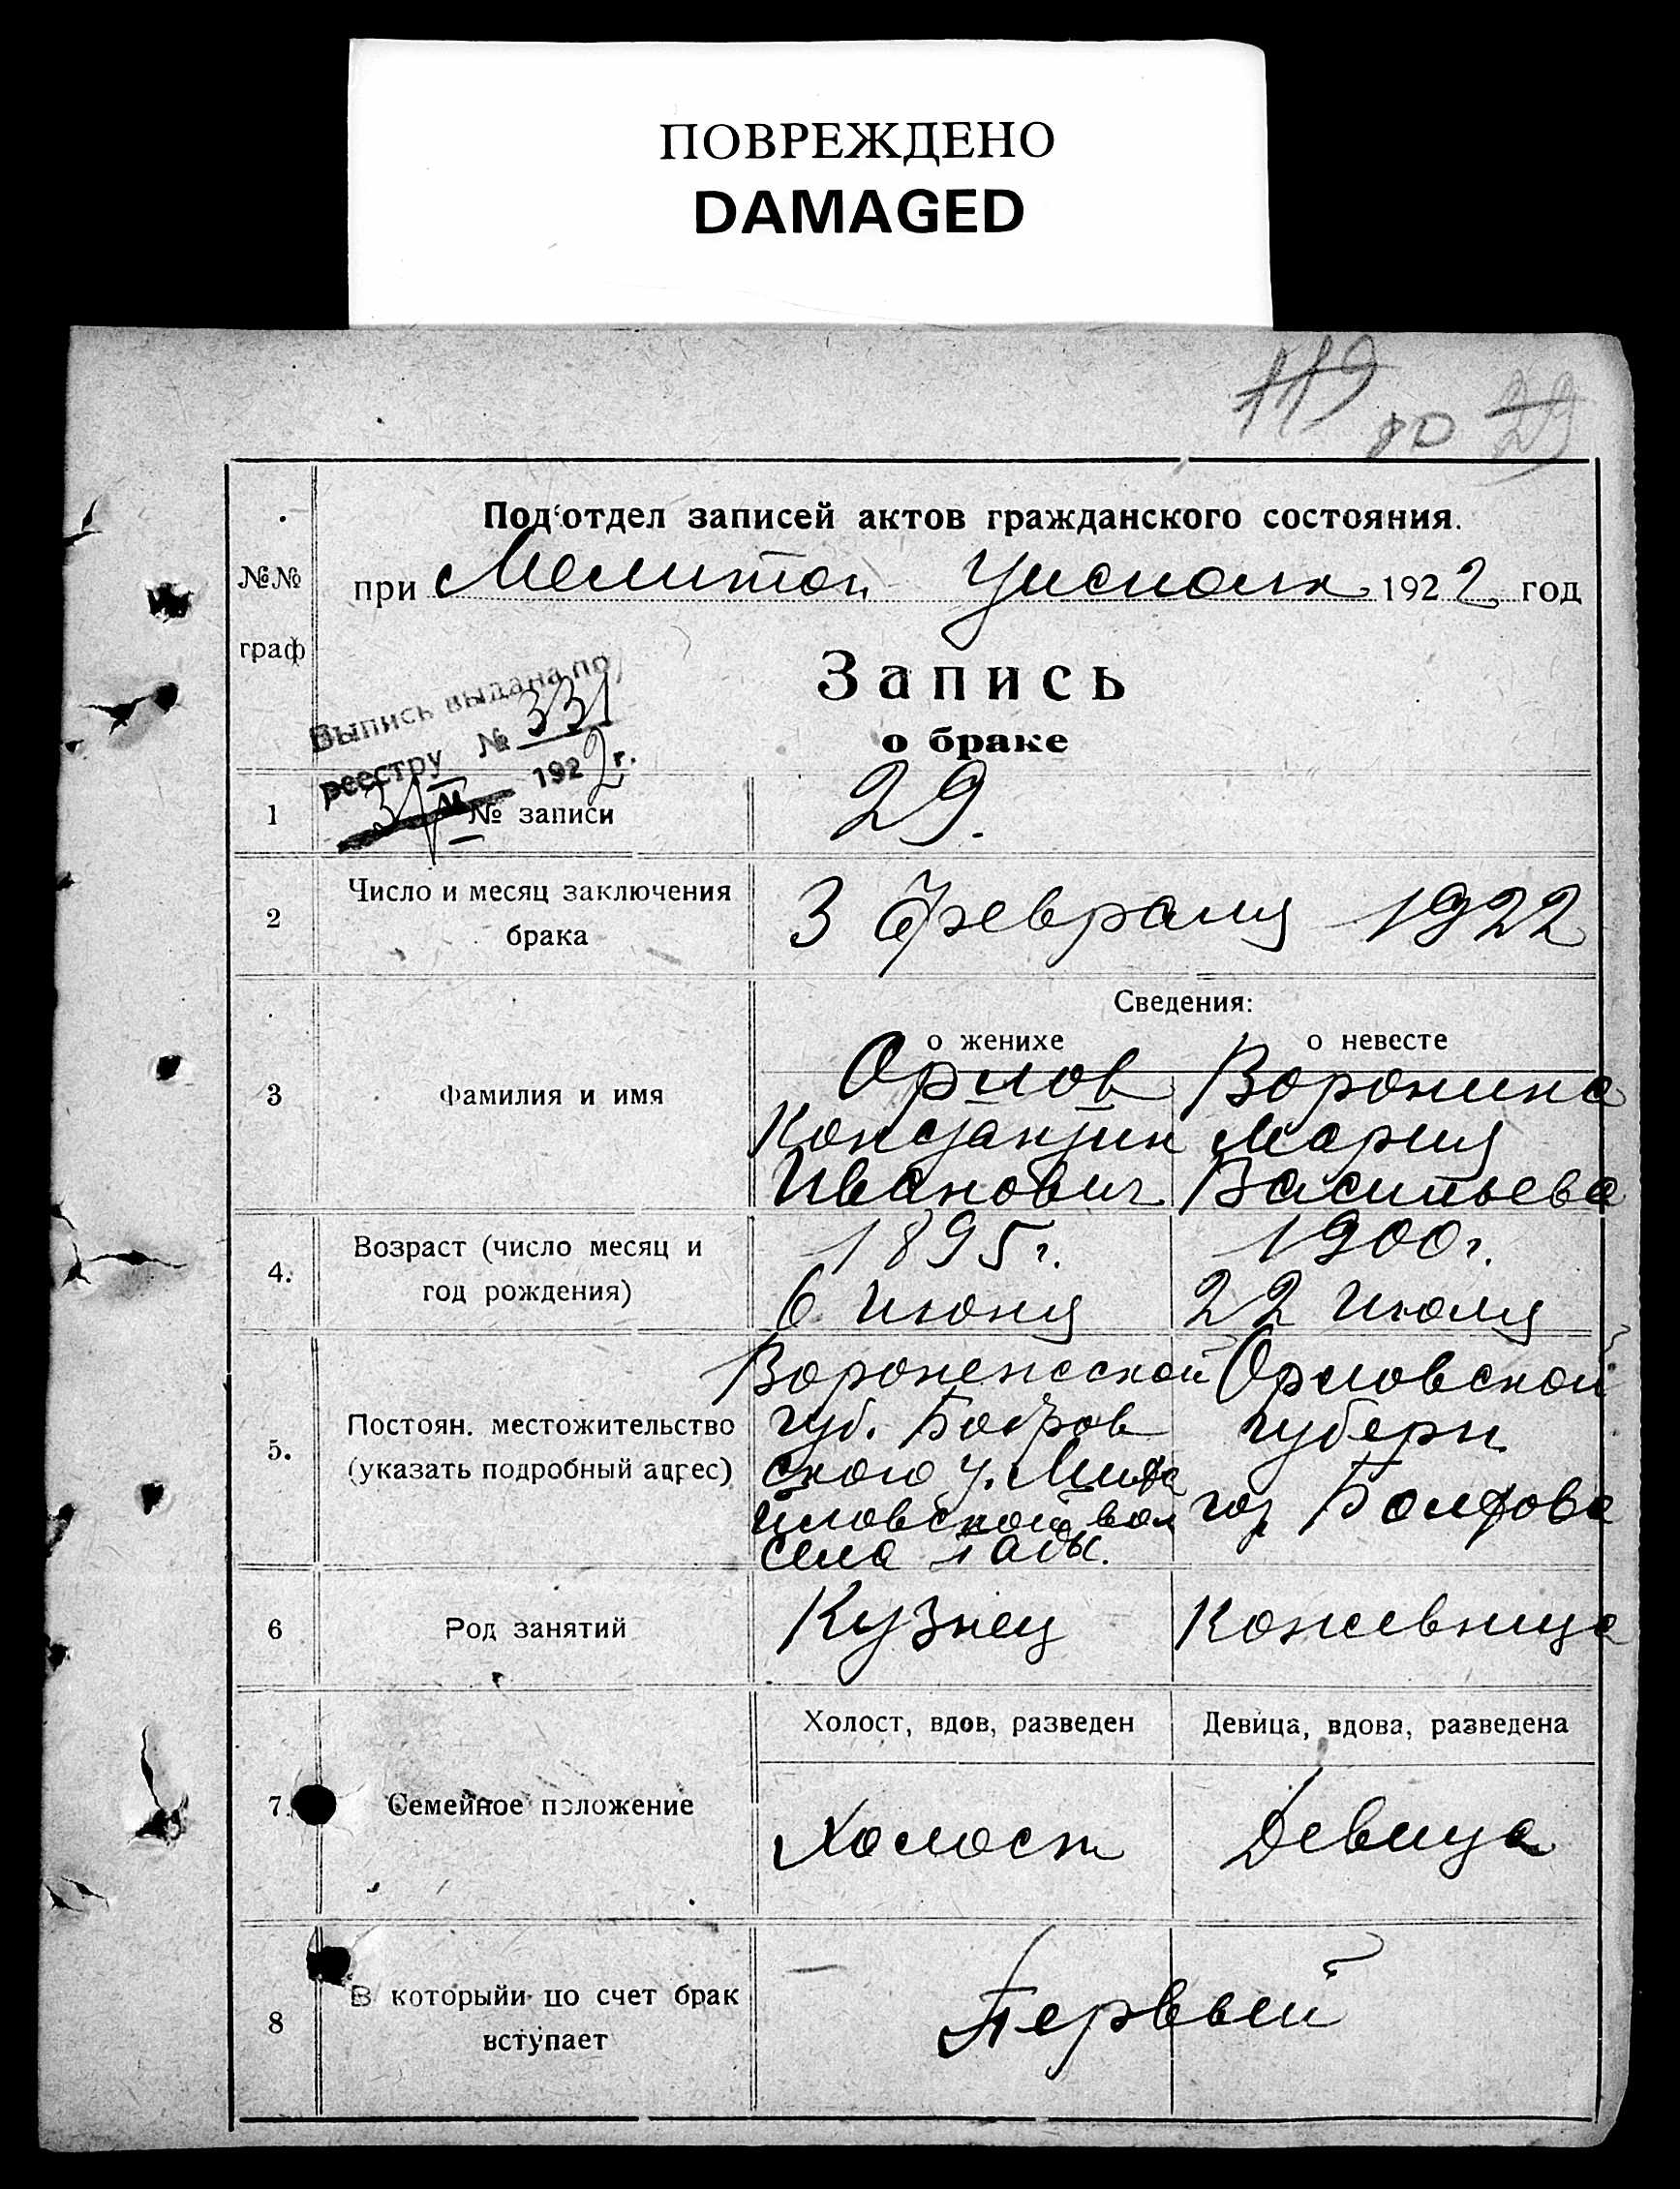 ПОВРЕЖДЕНО
DAMAGED
119 80 29
Под'отдел записей актов гражданского состояния.
№№ граф
при Мелитоп. Уисполк 1922 год
Выпись выдана по
реестру № 331
1922 г.
Запись
о браке
1 № записи 29.
2 Число и месяц заключения брака 3 Февраля 1922
Сведения:
о женихе о невесте
3 Фамилия и имя
Орлов Воронина
Константин Мария
Иванович Васильева
4. Возраст (число месяц и год рождения)
1895 г. 1900 г.
6 Июня 22 Июля
5. Постоян. местожительство (указать подробный адрес)
Воронежской Орловской
губ. Бобров губерн.
ского у. гор. Болхова
вол
села
6 Род занятий Кузнец Кожевница
Холост, вдов, разведен Девица, вдова, разведена
7. Семейное положение Холост Девица
8 В которыйи по счет брак вступает Первый